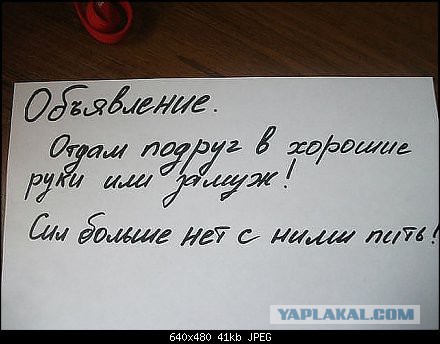 Объявление.
Отдам подруг в хорошие
руки или замуж!
Сил больше нет с ними пить!
YAPLAKAL.COM
640x480 41kb JPEG